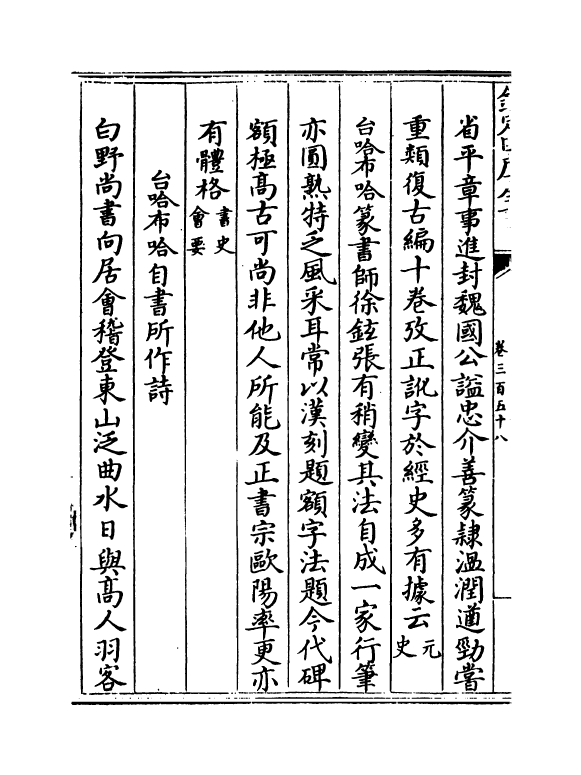 卷三百五十八
省平章事進封魏國公謚忠介善篆隷温潤遒勁嘗
重類復古編十卷攷正訛字於經史多有據云元史
台哈布哈篆書師徐鉉張有稍變其法自成一家行筆
亦圓熟特乏風采耳常以漢刻題額字法題今代碑
額極髙古可尚非他人所能及正書宗歐陽率更亦
有體格書史會要
台哈布哈自書所作詩
白野尚書向居會稽登東山泛曲水日與髙人羽客